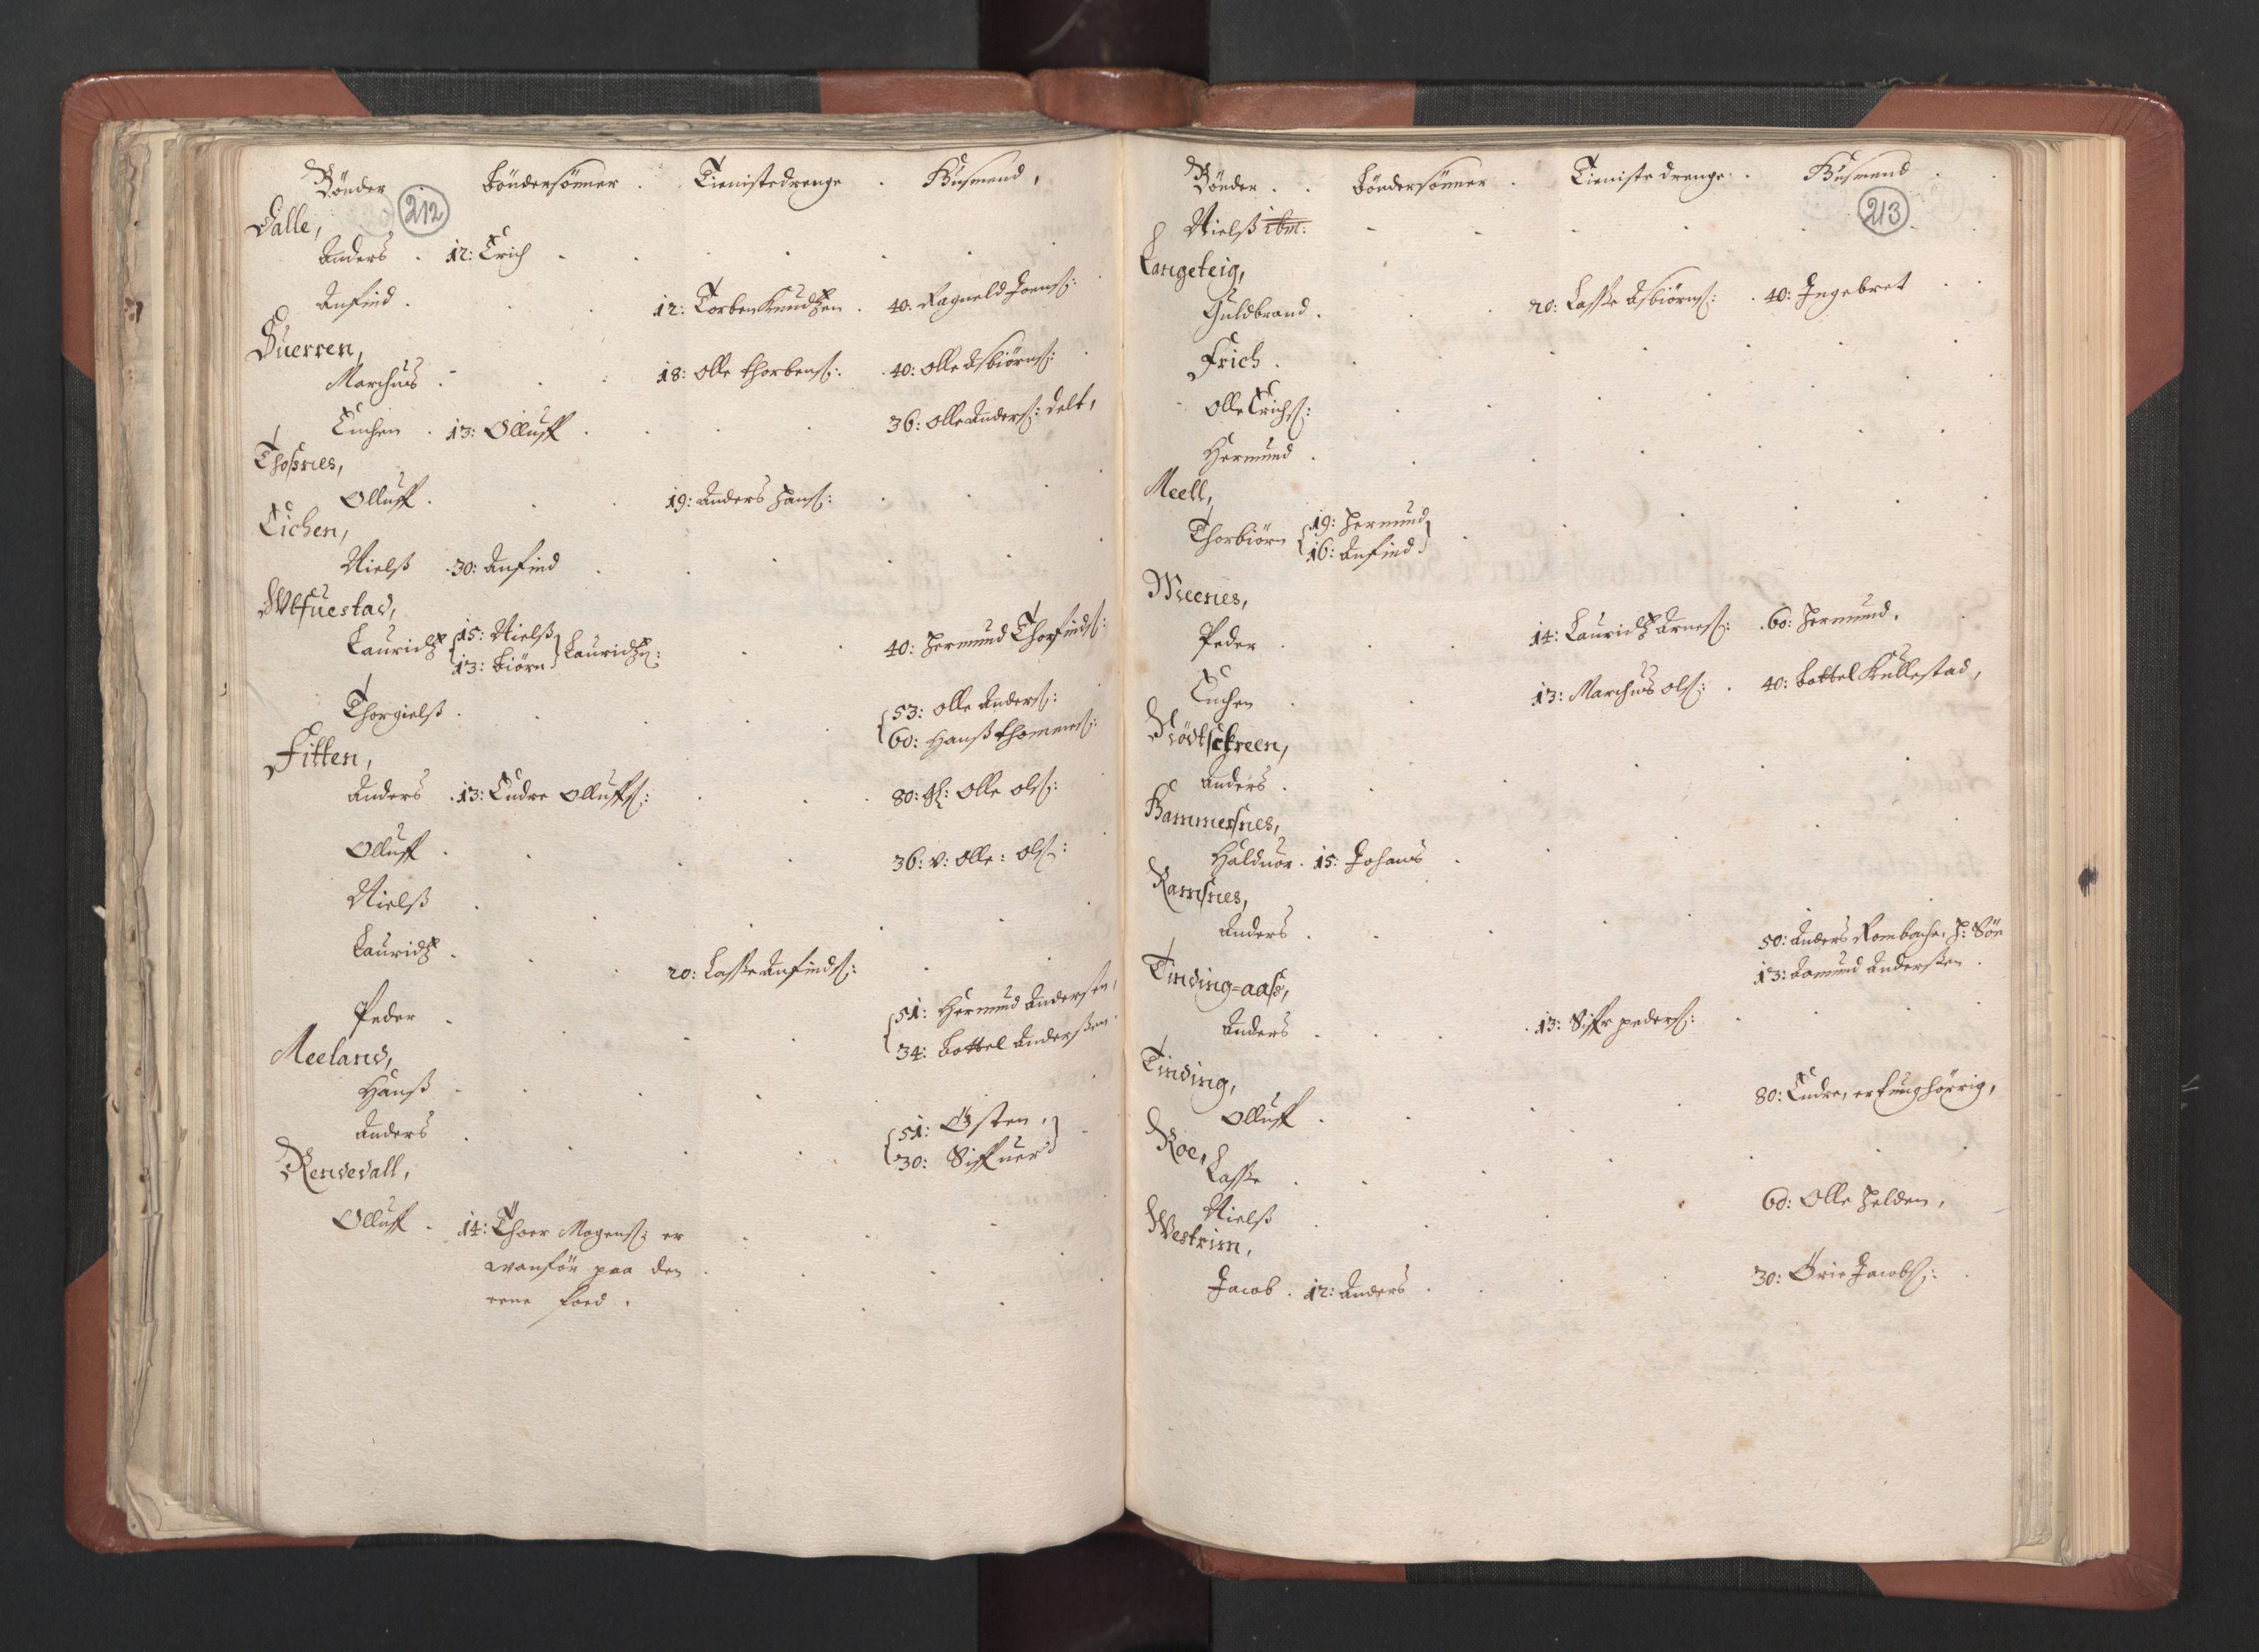 Bönder Böndersönner . Tienistedrenge . Husmend,
212
Dalle,
Anders . 12: Erich
Anfind . 12: Torben Knudtzen . 40: Ragneld Joens:
Duerren,
Marchus . 18: Olle Thorbens: . 40: Olle Asbiörns:
Euchen . 13: Olluff . 36: Olle Anders: delt,
Thossnes,
Olluff . 19: Anders Hans:
Eichen,
Nielss . 30: Anfind
Wtfuestad,
Lauridtz 15: Nielss
13: Biörn Lauridtz: 40: Hermund Thorfinds:
Thorgielss . 53: Olle Anders:
60: Hanss Thommes:
Fitten,
Anders . 13: Endre Olluffs: 80: gl: Olle Ols:
Olluff . 36: v: Olle: Ols:
Nielss
Lauridtz . 20: Lasse Anfinds:
Peder . 51: Hermund Andersen,
34: Bottel Anderssen
Meeland,
Hanss
Anders . 51: Östen,
30: Siffuer
Rendedall,
Olluff . 14: Thoer Mogens: er
wanför paa den
eene foed .
Bönder . . Böndersönner . Tieniste drenge . Husmend
213
Nielss ibm:
Langeteig,
Guldbrand . 20: Lasse Asbiörns: . 40: Ingebret
Erich .
Olle Erichs:
Hermund .
Meell,
Thorbiörn 19: Hermund
16: Anfind
Weenes,
Peder . 14: Lauridtz Arnes: . 60: Hermund.
Euchen . 13: Marchus Ols: . 40: Bottel Kullestad,
Rödtschreen,
Anders .
Hammersnes,
Halduor . 15: Johans
Ramsnes,
Anders . 50: Anders Rombache. H: Sön
13: Aamund Anderssen .
Tinding=aass,
Anders . 13: Siffr peders:
Tinding,
Olluff . 80: Endre, er tunghörrig,
Roe,
Lasse .
Nielss . 60: Olle Helden,
Westrim,
Jacob . 12: Anders . 30: Brie Jacobs: